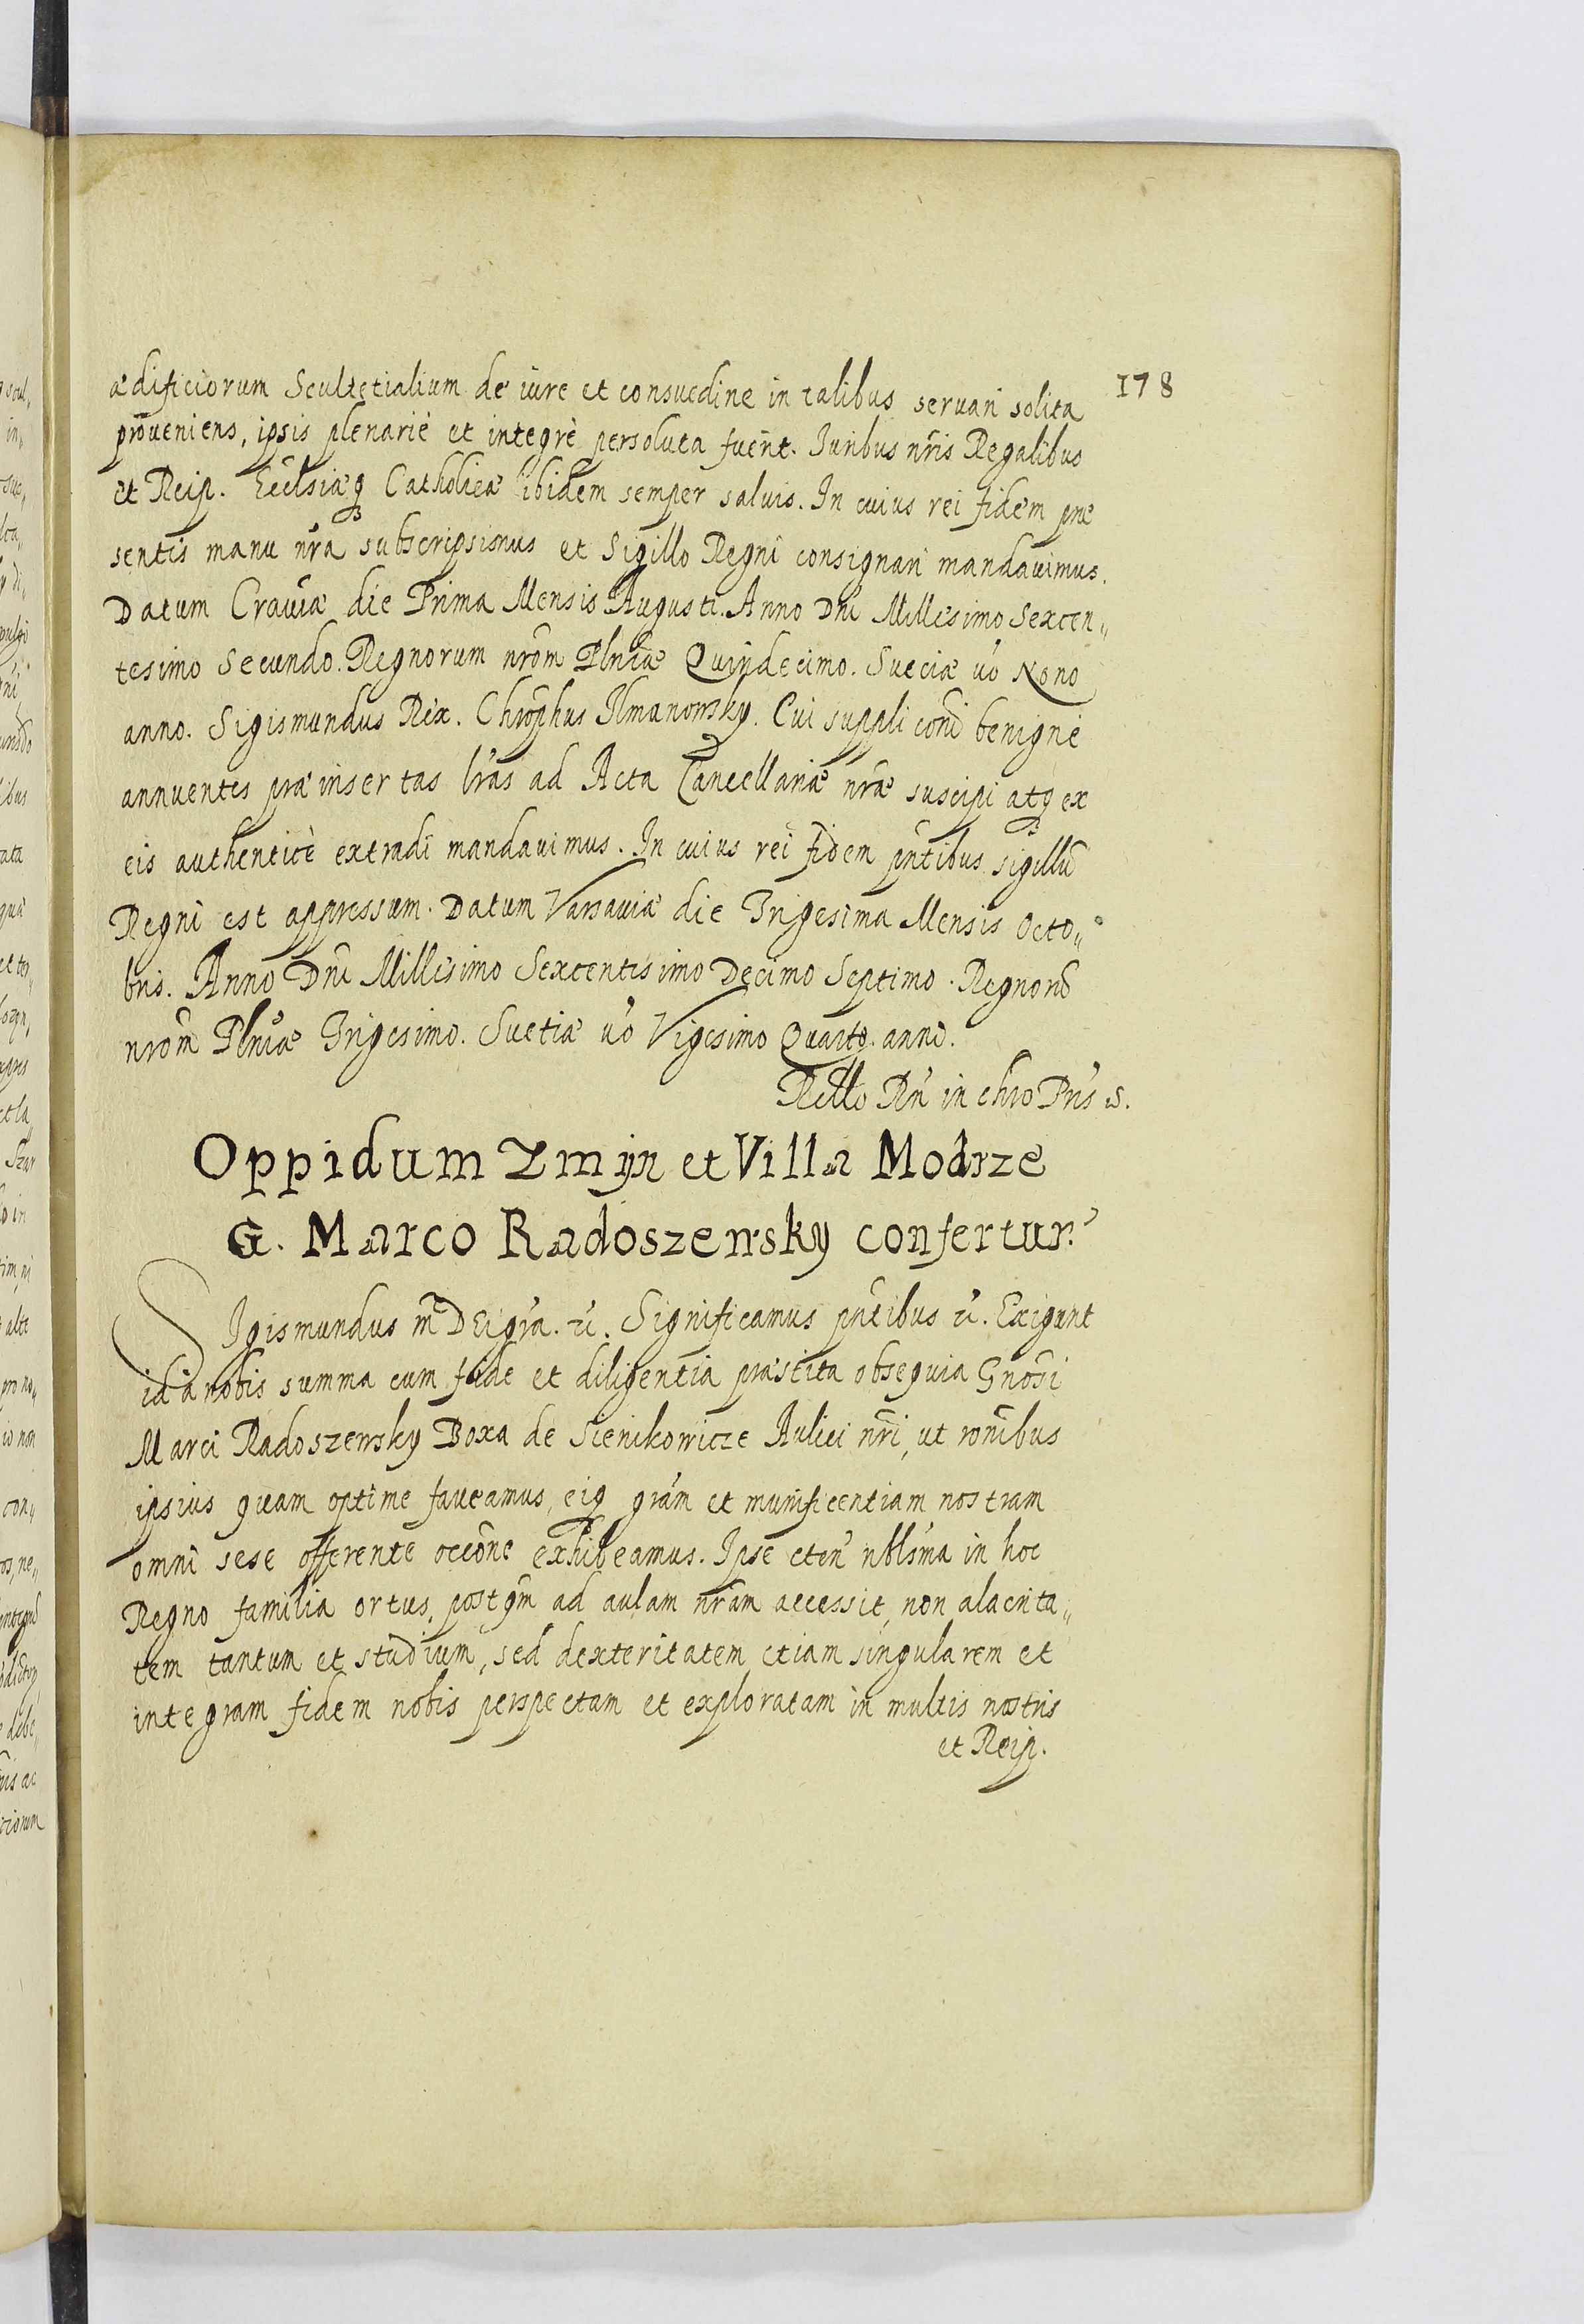 178
ædificiorum Scultetialium de iure et consuedine in talibus servari solita
proveniens, ipsis plenarie et integrè persoluta fuerit. Iuribus nr̃is Regalibus
et Reip. Ecclsiæq3 Catholicæ ibidem semper salvis. In cuius rei fidem præ
sentis manu nr̃a subscripsimus et Sigillo Regni consignari mandavimus.
Datum Cracviæ die Prima Mensis Augusti. Anno Dñi Millesimo Sexcen„
tesimo Secundo. Regnorum nrõm Plñiæ Quindecimo. Sueciæ vo Nono
anno. Sigismundus Rex. Chrõphus Ilmanowsky. Cui suppli coñi benigne
annuentes præinsertas lr̃as ad Acta Cancellariæ nr̃æ suscipi atq3 ex
eis authenticè extradi mandavimus. In cuius rei fidem pñtibus sigillũ
Regni est appressum. Datum Varsaviæ die Trigesima Mensis Octo„
bris. Anno Dñi Millesimo Sexcentesimo Decimo Septimo. Regnorũ
nrõm Plñiæ Trigesimo. Suetiæ vo Vigesimo Quarto anno.
Rello Rñ in chro Pris s.
Oppidum Zmijn et Villa Modrze
G. Marco Radoszewsky confertur.
SIgismundus III DEI gr̃a. etc. Significamus pñtibus etc. Exigunt
id a nobis summa cum fide et diligentia præstita obsequia Gnõsi
Marci Radoszewsky Boxa de Sienikowicze Aulici nr̃i, ut ronibus
ipsius quam optime faveamus, eiq3 gr̃am et munificentiam nostram
omni sese offerente occõne exhibeamus. Ipse eteñ nblsma in hoc
Regno familia ortus, postqm̃ ad aulam nr̃am accessit, non alacrita„
tem tantum et studium, sed dexteritatem etiam singularem et
integram fidem nobis perspectam et exploratam in multis nostris
et Reip.